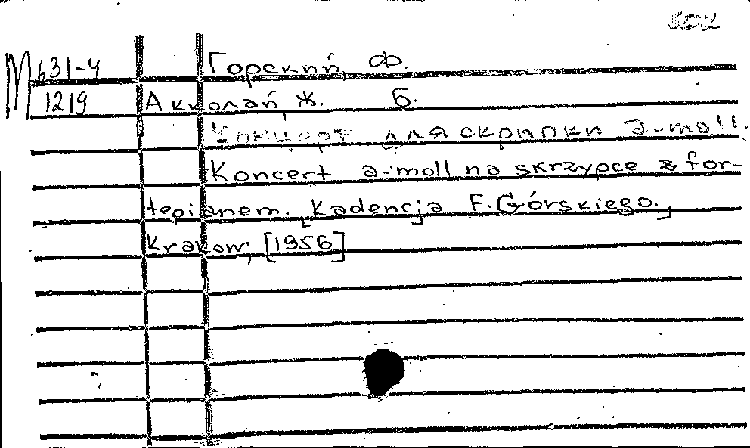 М 631-4 Горский, Ф.
1219 Акколай, Ж. Б.
Концерт для скрипки a-moll.
Koncert a-moll na skrzypce z for-
tepianem. [Kadencja F. Górskiego.]
Kraków, [1956]